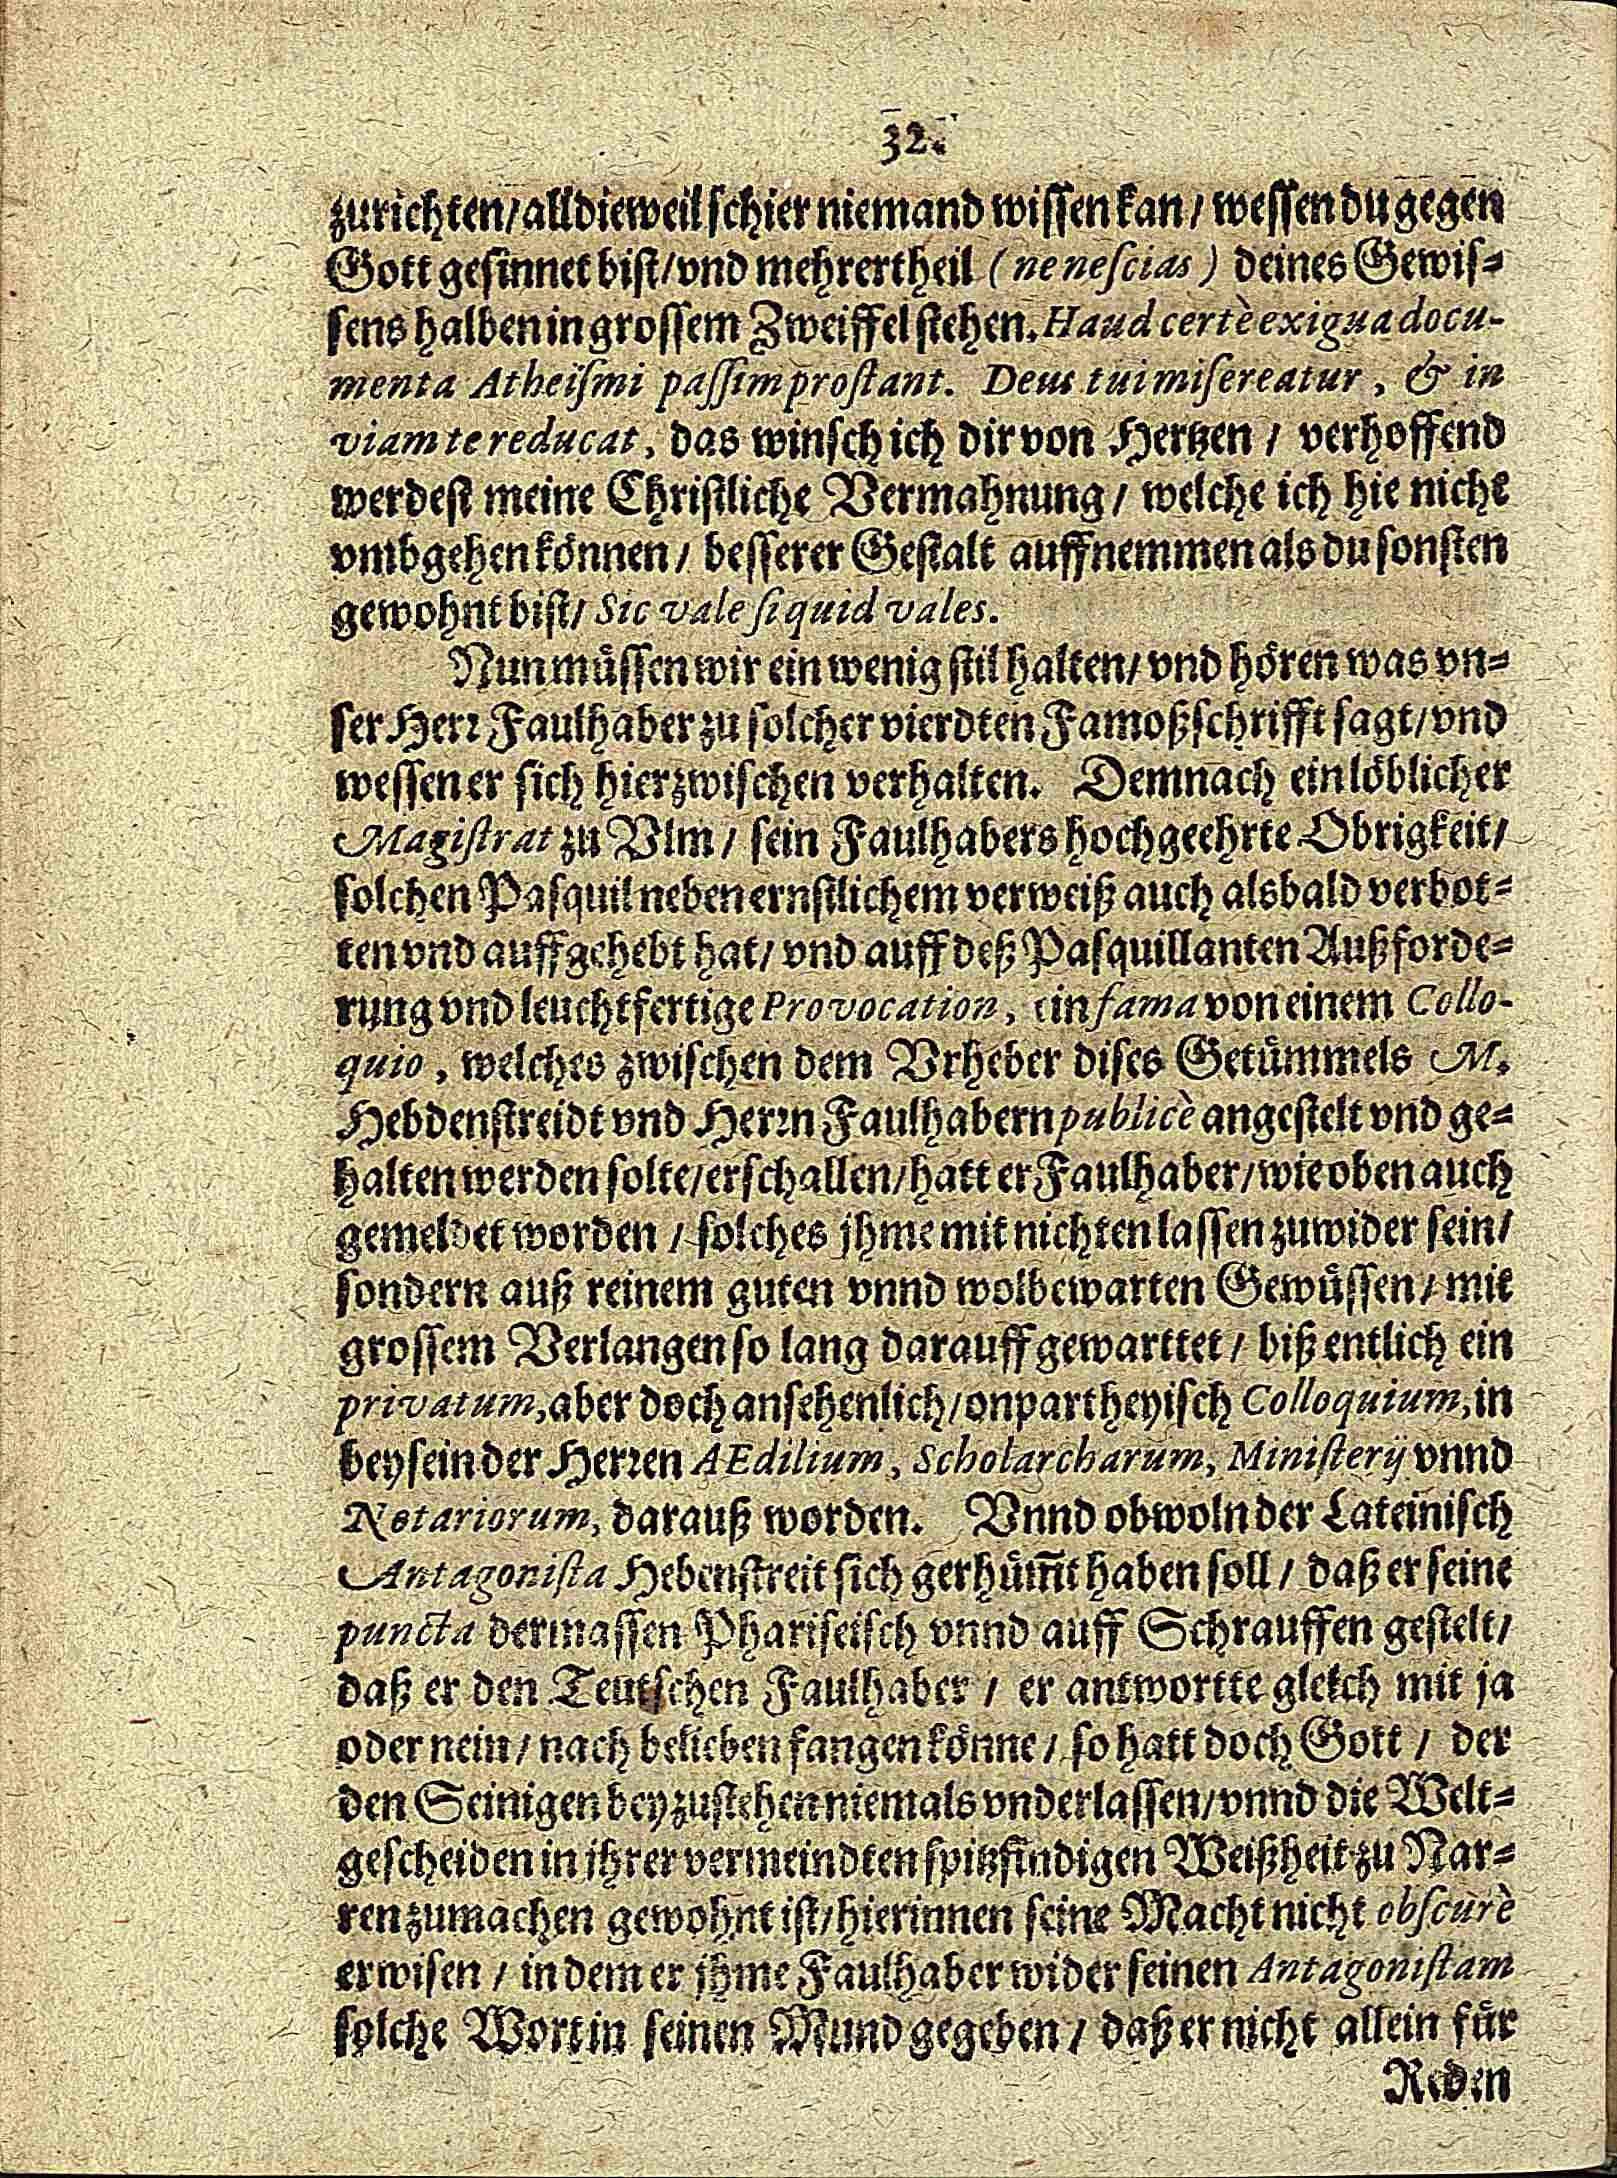 32.
zurichten/alldieweil schier niemand wissen kan/ wessen du gegen
Gott gesinnet bist/vnd mehrertheil (ne nescias) deines Gewis-
sens halben in grossem Zweiffel stehen. Haud certè exigua docu-
menta Atheïsmi passim prostant. Deus tui misereatur, & in
viam te reducat, das winsch ich dir von Hertzen / verhoffend
werdest meine Christliche Vermahnung/ welche ich hie nicht
vmbgehen können/ besserer Gestalt auffnemmen als du sonsten
gewohnt bist/ Sic vale si quid vales.
Nun müssen wir ein wenig stil halten/ vnd hören was vn-
ser Herr Faulhaber zu solcher vierdten Famoßschrifft sagt/vnd
wessen er sich hierzwischen verhalten. Demnach ein löblicher
Magistrat zu Vlm / sein Faulhabers hochgeehrte Obrigkeit/
solchen Pasquil neben ernstlichem verweiß auch alsbald verbot-
ten vnd auffgehebt hat/ vnd auff deß Pasquillanten Außforde-
rung vnd leuchtfertige Provocation, ein fama von einem Collo-
quio, welches zwischen dem Vrheber dises Getümmels M.
Hebdenstreidt vnd Herrn Faulhabern publicè angestelt vnd ge-
halten werden solte/erschallen/hatt er Faulhaber/wie oben auch
gemeldet worden / solches jhme mit nichten lassen zuwider sein/
sondern auß reinem guten vnnd wolbewarten Gewüssen/ mit
grossem Verlangen so lang darauff gewarttet / biß entlich ein
privatum, aber doch ansehenlich/onpartheyisch Colloquium, in
beysein der Herren AEdilium, Scholarcharum, Ministerij vnnd
Notariorum, darauß worden. Vnnd obwoln der Lateinisch
Antagonista Hebenstreit sich gerhüm̄t haben soll / daß er seine
puncta dermassen Phariseisch vnnd auff Schrauffen gestelt/
daß er den Teutschen Faulhaber / er antwortte gleich mit ja
oder nein / nach belieben fangen könne / so hatt doch Gott / der
den Seinigen beyzustehen niemals vnderlassen/vnnd die Welt-
gescheiden in jhrer vermeindten spitzfindigen Weißheit zu Nar-
ren zumachen gewohnt ist/hierinnen seine Macht nicht obscurè
erwisen / in dem er jhme Faulhaber wider seinen Antagonistam
solche Wort in seinen Mund gegeben / daß er nicht allein für
Reden